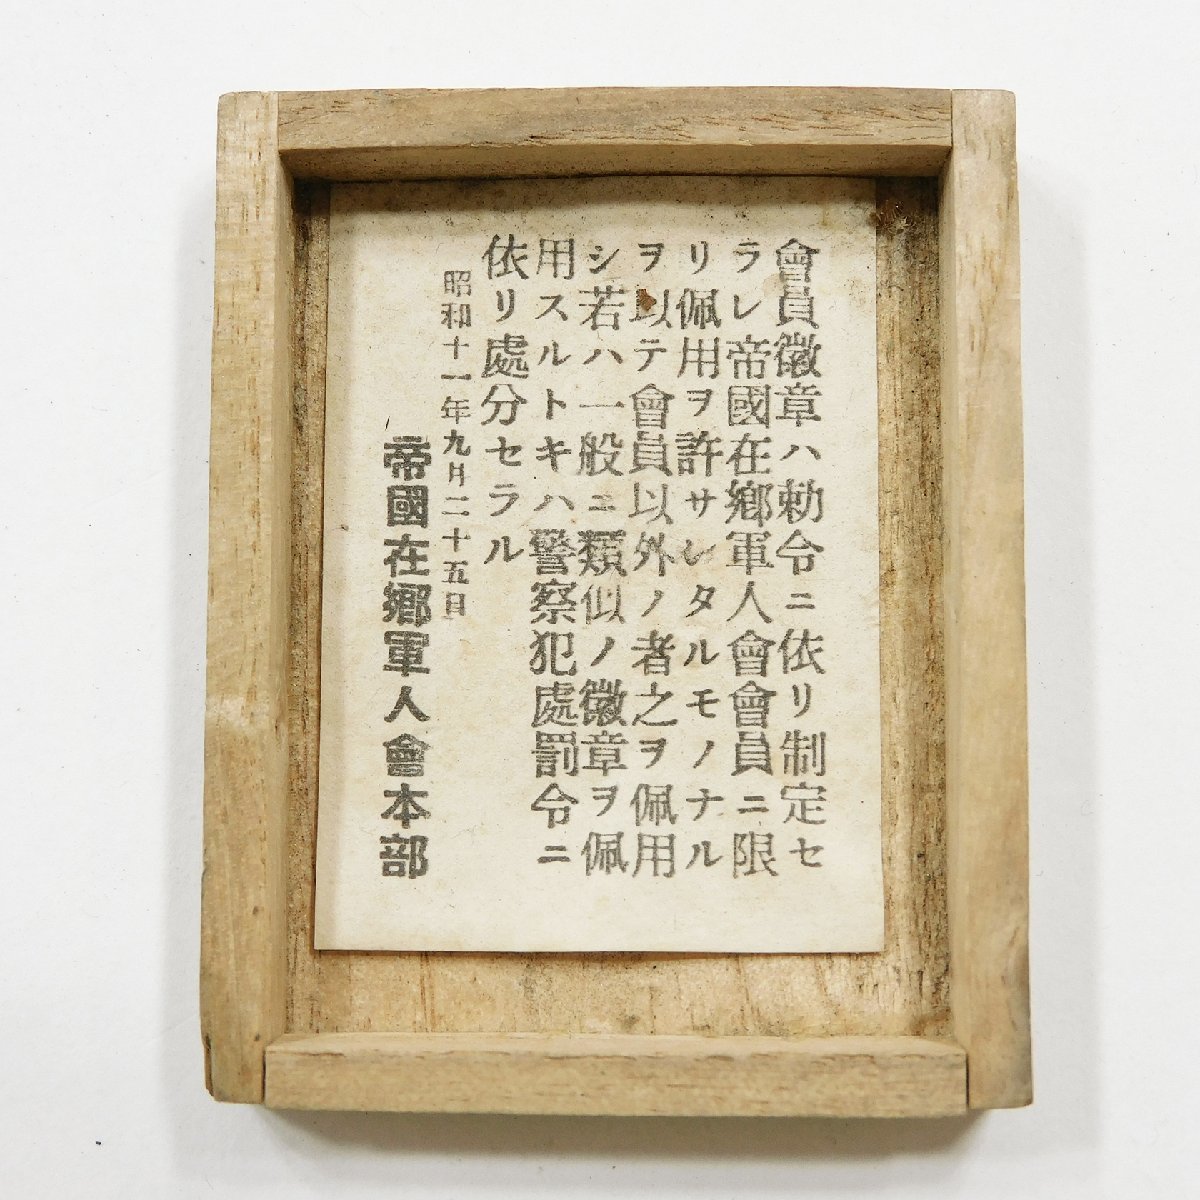 會員徽章ハ勅令ニ依リ制定セ
ラレ帝國在鄕軍人會會員ニ限
リ佩用ヲ許サレタルモノナル
ヲ以テ會員以外ノ者之ヲ佩用
シ若ハ一般ニ類似ノ徽章ヲ佩
用スルトキハ警察犯處罰令ニ
依リ處分セラル
昭和十一年九月二十五日
帝國在鄕軍人會本部